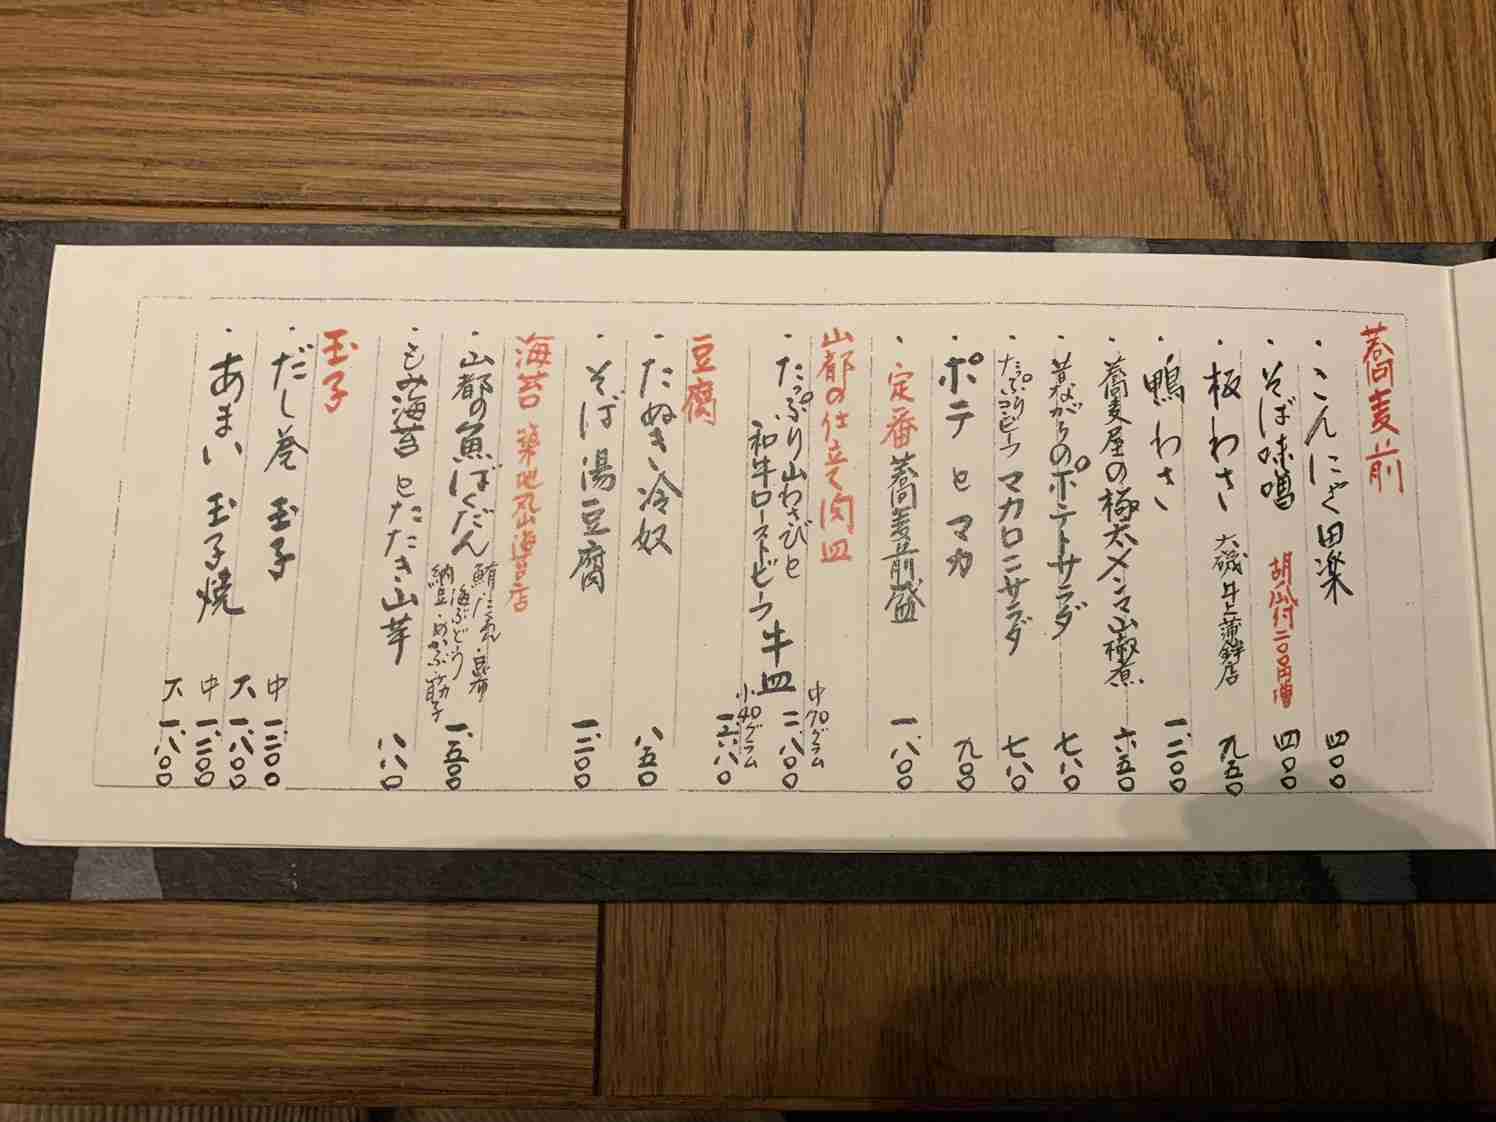 蕎麦前
・こんにゃく田楽 四〇〇
・そば味噌 胡瓜付二〇〇円増 四〇〇
・板わさ 大磯 井上蒲鉾店 九五〇
・鴨わさ 一、二〇〇
・蕎麦屋の極太メンマ山椒煮 六五〇
・昔ながらのポテトサラダ 七八〇
・たっぷりコンビーフ マカロニサラダ 七八〇
・ポテとマカ 九〇〇
・定番 蕎麦前盛 一、八〇〇
山都の仕立て肉皿
・たっぷり山わさびと
和牛ローストビーフ牛皿
中70グラム 二、八〇〇
小40グラム 一、六八〇
豆腐
・たぬき冷奴 八五〇
・そば湯豆腐 一、二〇〇
海苔 築地丸山海苔店
・山都の魚ばくだん
海ぶどう
納豆・めかぶ・筋子
一、五〇〇
・もみ海苔とたたき山芋 八八〇
玉子
・だし巻玉子 中 一、二〇〇
大 一、八〇〇
・あまい玉子焼 中 一、二〇〇
大 一、八〇〇